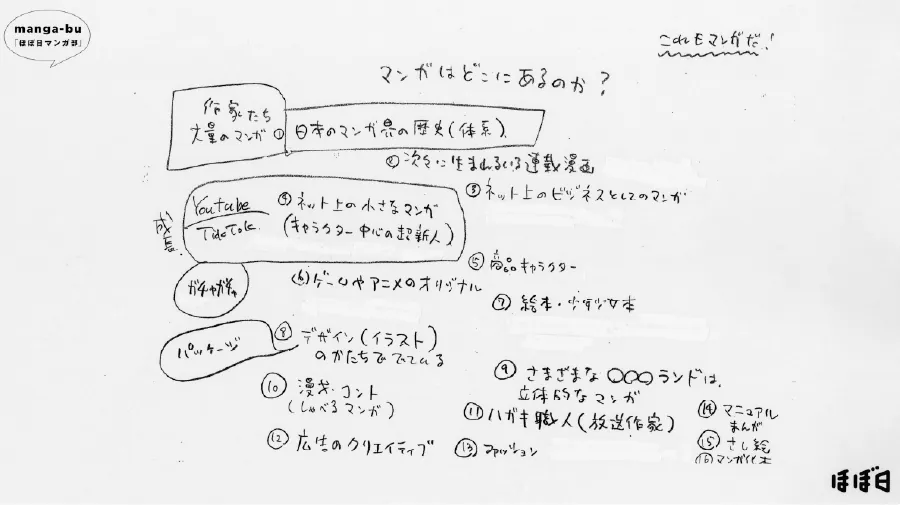 manga-bu
「ほぼ日マンガ部」
これもマンガだ!
マンガはどこにあるのか?
作家たち
大量のマンガ
① 日本のマンガ界の歴史(体系)
② 次々に生まれている連載漫画
③ ネット上のビジネスとしてのマンガ
成長
Youtube
TikTok
④ ネット上の小さなマンガ
(キャラクター中心の超新人)
⑤ 商品キャラクター
ガチャガチャ
⑥ ゲームやアニメのオリジナル
⑦ 絵本・少年少女本
パッケージ
⑧ デザイン(イラスト)
のかたちででている
⑨ さまざまな〇〇〇ランドは、
立体的なマンガ
⑩ 漫才・コント
(しゃべるマンガ)
⑪ ハガキ職人(放送作家)
⑫ 広告のクリエイティブ
⑬ ファッション
⑭ マニュアル
まんが
⑮ さし絵
⑯ マンガ化
ほぼ日